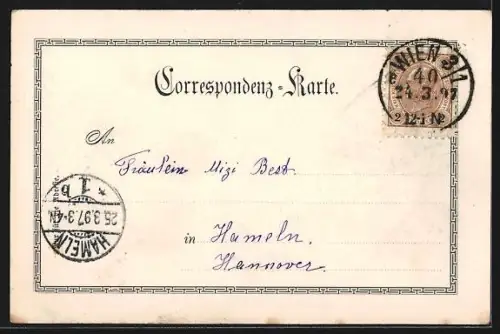 WIEN 3/1
40
24.3.97
2 12-1 N
Correspondenz-Karte.
An
Fräulein Mizi Best.
* 1 b
25.3.97.3-4N
HAMELN
in Hameln.
Hannover.